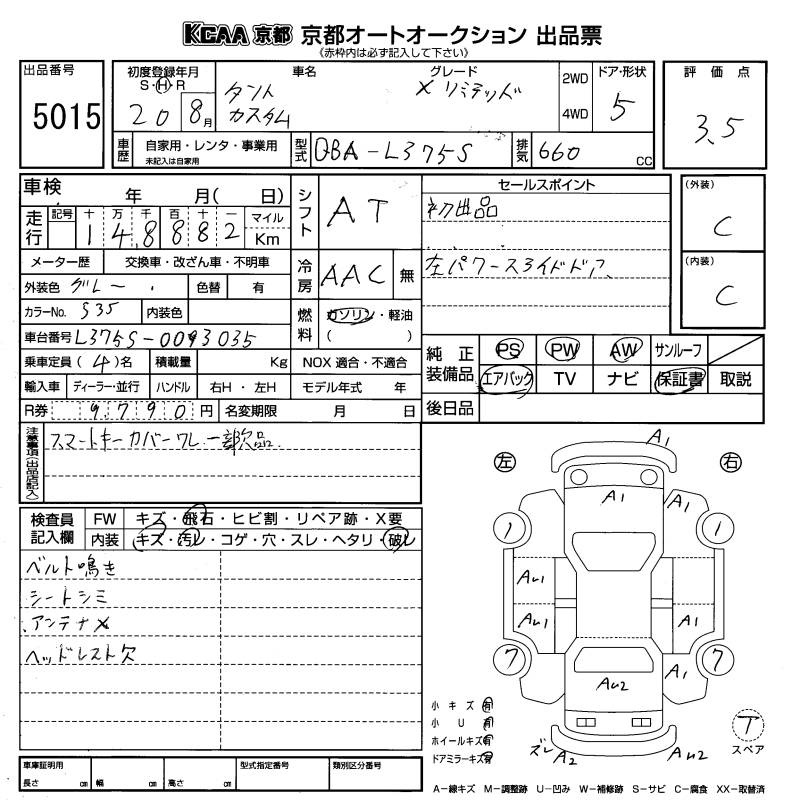 KCAA 京都 京都オートオークション 出品票
《赤枠内は必ず記入して下さい》
出品番号
5015
初度登録年月
S・H・R
20 8月
車名
タント
カスタム
グレード
X リミテッド
2WD
4WD
ドア・形状
5
評価点
3.5
車歴
自家用・レンタ・事業用
未記入は自家用
型式
DBA-L375S
排気
660 CC
車検 年 月( 日)
走行
記号 十 万 千 百 十 一 マイル
1 4.8 8 8 2 Km
メーター歴 交換車・改ざん車・不明車
外装色 グレー 色替 有
カラーNo. S35 内装色
車台番号 L375S-0093035
乗車定員 (4)名 積載量 Kg
輸入車 ディーラー・並行 ハンドル 右H・左H
R券 9,790 円 名変期限 月 日
シフト AT
冷房 AAC 無
燃料 ガソリン・軽油
( )
NOX 適合・不適合
モデル年式 年
セールスポイント
初出品
左パワースライドドア
(外装)
C
(内装)
C
純正装備品
PS PW AW サンルーフ
エアバック TV ナビ 保証書 取説
後日品
注意事項(出品店記入)
スマートキーカバーワレ 一部欠品
検査員記入欄
FW キズ・飛石・ヒビ割・リペア跡・X要
内装 キズ・汚レ・コゲ・穴・スレ・ヘタリ・破レ
ベルト鳴き
シートシミ
アンテナ✕
ヘッドレスト欠
左 右
A1
A1 A1
1 1
AU1
AU1 A1
7 7
A1
AU2
ズレ A2 AU2
小キズ 有
小U 有
ホイールキズ 有
ドアミラーキズ 有
T
スペア
車庫証明用
長さ cm 幅 cm 高さ cm
型式指定番号 類別区分番号
A-線キズ M-調整跡 U-凹み W-補修跡 S-サビ C-腐食 XX-取替済